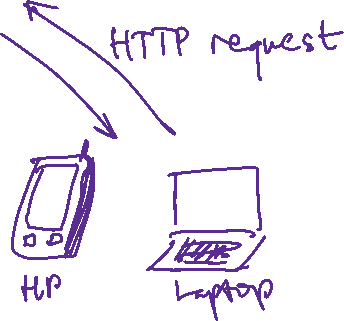 HTTP request
HP
Laptop